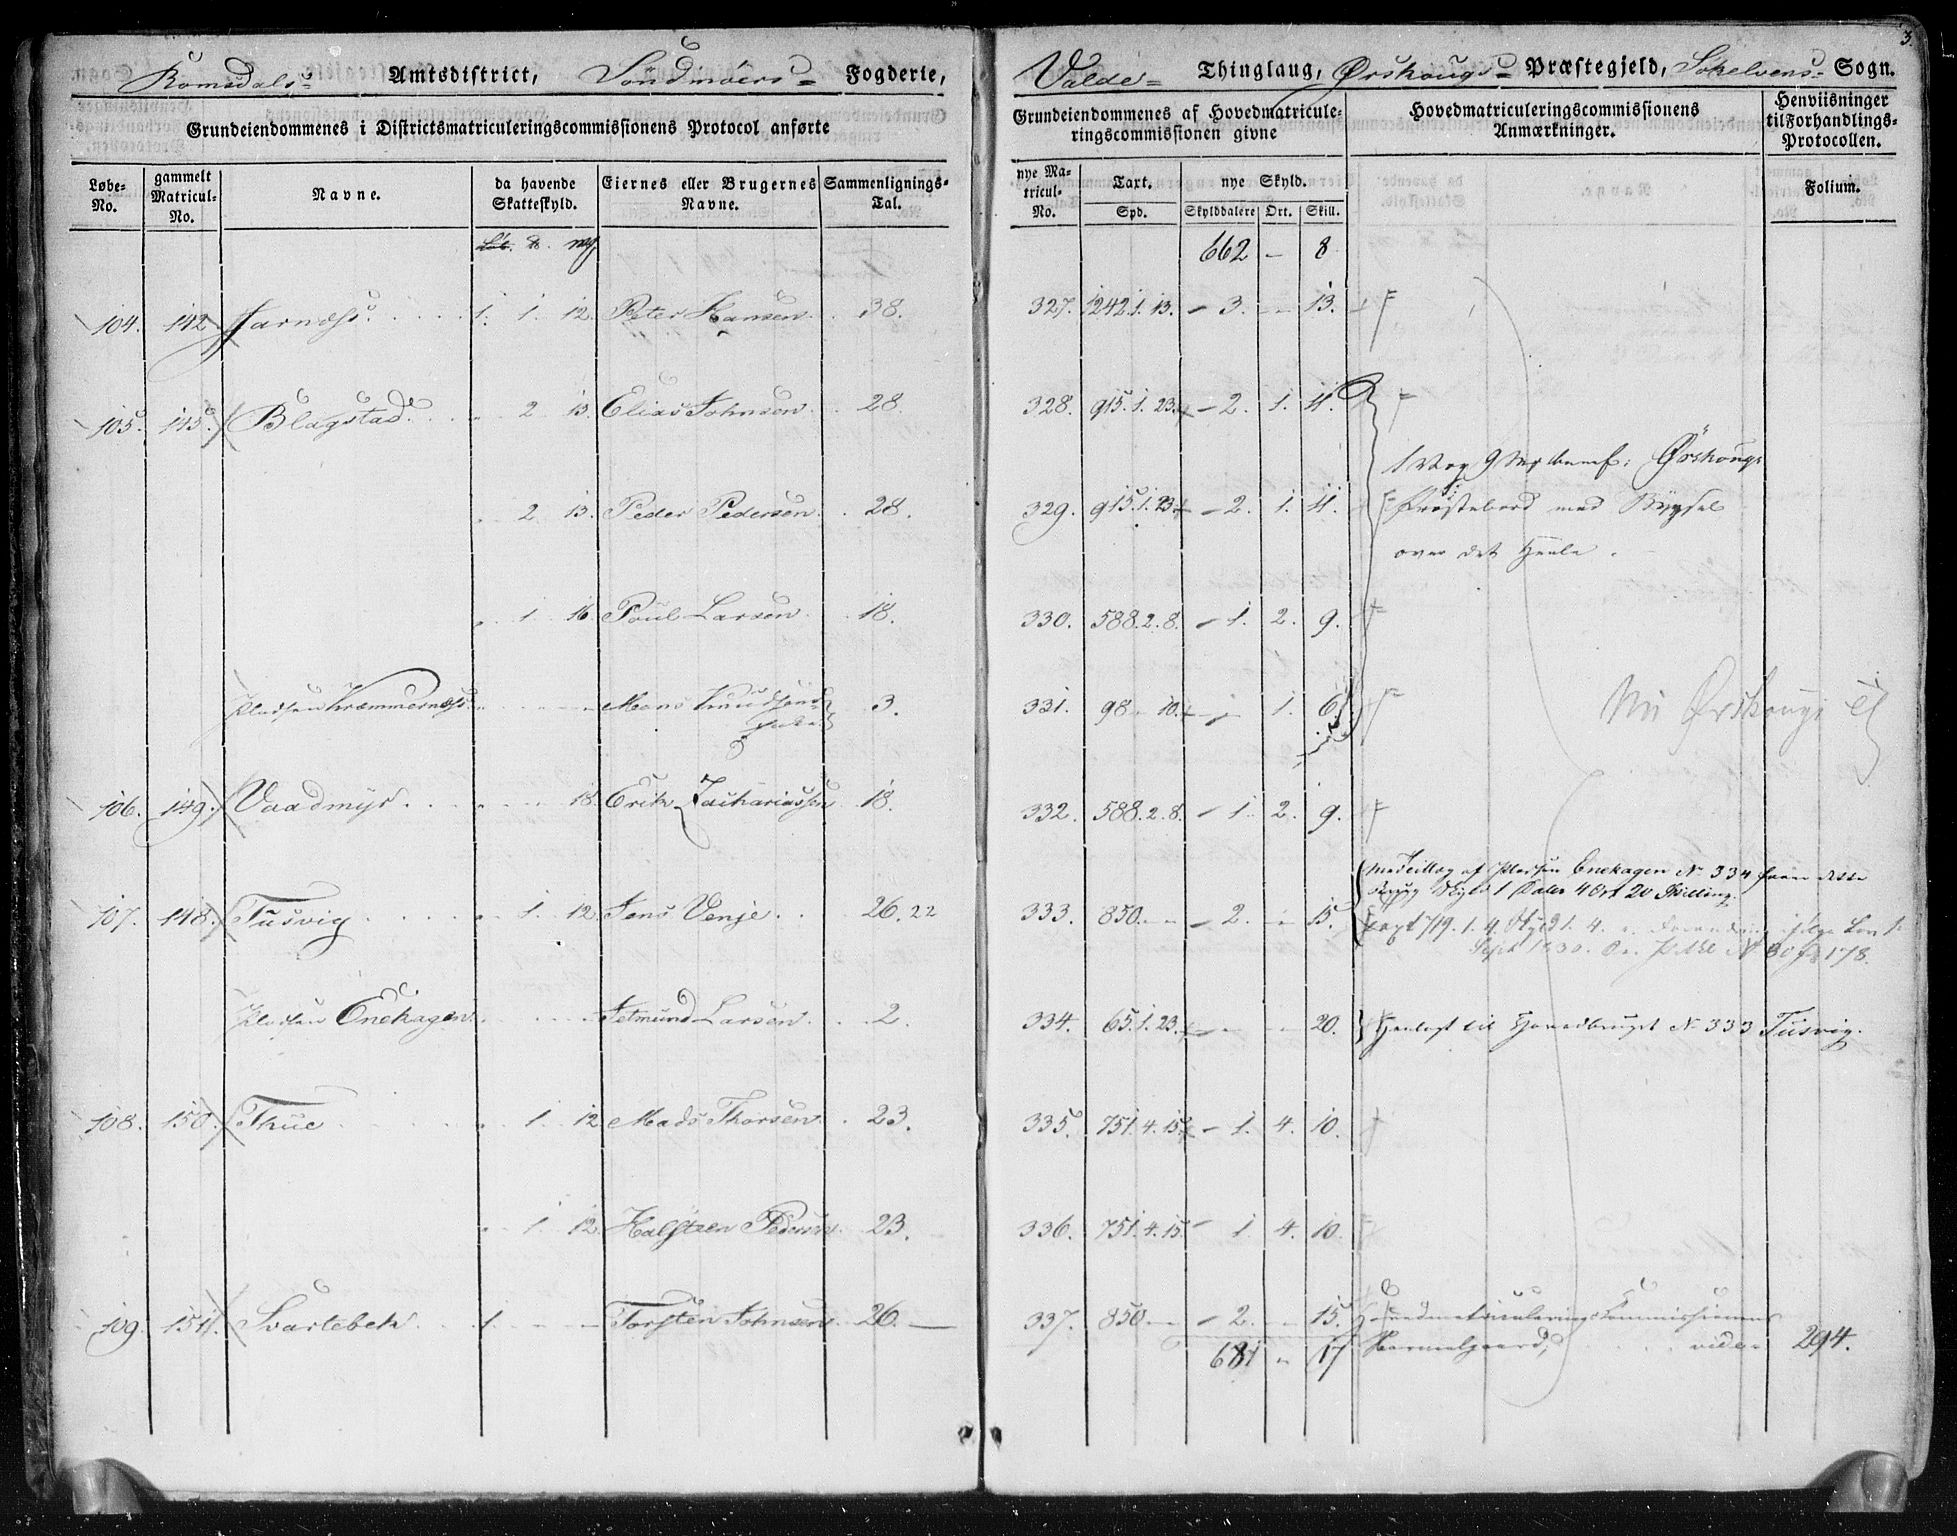 3.
Romsdals Amtsdistrict, Søndmøers Fogderie,
Grundeiendommenes i Districtsmatriculeringscommissionens Protocol anførte
Løbe-No. gammelt Matricul-No. Navne. da havende Skatteskyld. Eiernes eller Brugernes Navne. Sammenlignings-Tal.
104. 142 Jarnæs. 1. 1. 12. Peter Hansen 38.
105. 145. Blagstad. " 2 13. Elias Johnsen 28.
" 2 13. Peder Pedersen 28.
" 1 16 Poul Larsen 18.
Pladsen Kræmmernæs Mons Knudsens 3.
106. 149. Vaadmyr 18. Erik Zachariassen 18.
107. 148. Tusvig " 1. 12. Jens Venje 26. 22
Pladsen Enehagen Jetmund Larsen 2.
108. 150. Thue " 1. 12 Mads Thorsen 23.
" 1. 12. Halsteen Pedersen 23.
109. 151. Svartebek 1. Torsten Johnsen 26.
Valde Thinglaug, Ørskougs Præstegjeld, Søkelvens Sogn.
Grundeiendommenes af Hovedmatriculeringscommissionen givne
Hovedmatriculeringscommissionens Anmærkninger.
Henviisninger til Forhandlings-Protocollen.
nye Matricul-No. Taxt. Spd. nye Skyld. Skylddalere Ort. Skill. Folium.
662 - 8
327. 1242. 1. 13. - 3. - 13.
328. 915. 1. 23. - 2. 1. 11.
1 Vog 9 Mk benef: Ørskougs
329. 915. 1. 23 - 2. 1. 11. Præstebord med Bygsel
over det Heele.
330. 588. 2. 8. - 1. 2. 9.
331. 98 - 10. - 1. 6
Ørskougs
332. 588. 2. 8. - 1. 2. 9.
Med Tillæg af Pladsen Enehagen No 334
Skyld 1 Daler 4 Ort 20 Skilling.
333. 850. - - 2. - 15. Taxt 719. 1. 4. Skyld 1. 4.
Sept 1830. No 30 178.
334. 65. 1. 23. 20. Henlagt til Hovedbruget No 333 Tusvig.
335. 751. 4. 15. - 1. 4. 10.
336. 751. 4. 15. - 1. 4. 10.
337. 850 - - 2. - 15. Hovedmatriculerings Commissionens
681 " 17 Normalgaard, vide 294.